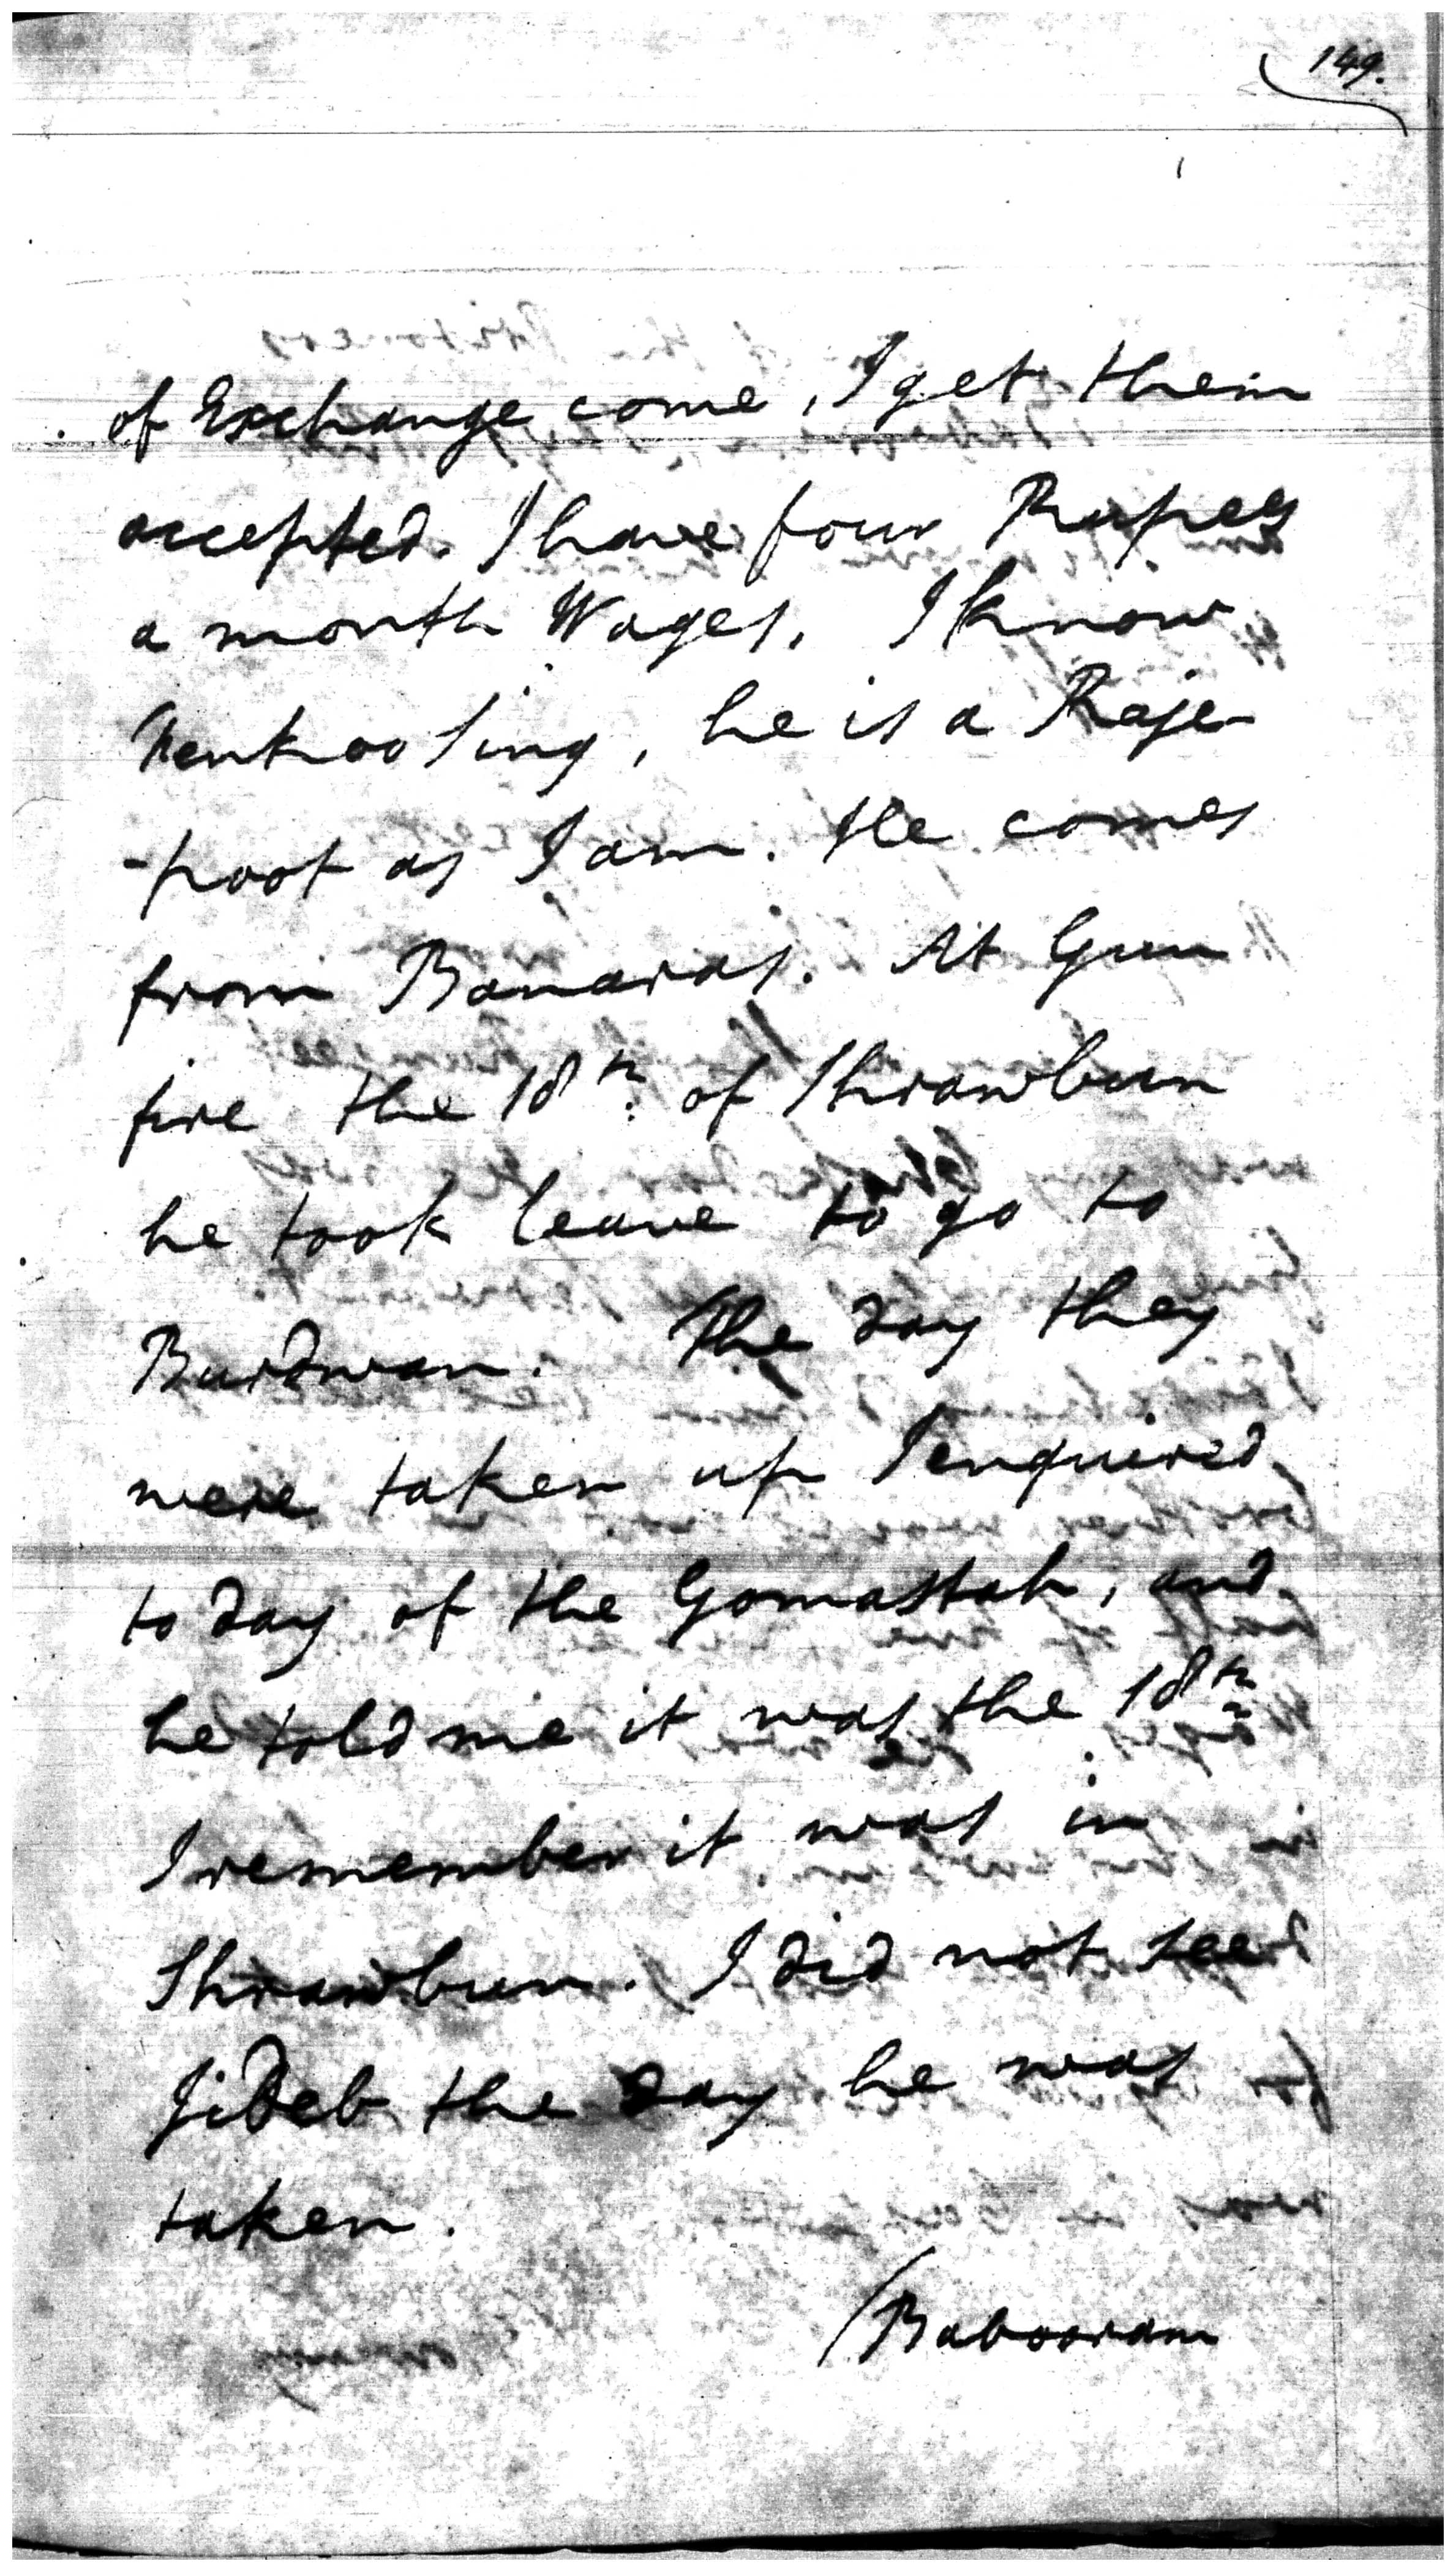 149.
of Exchange come, I get them
accepted. I have four Rupees
a month Wages. I know
Sing, he is a Raje-
-poot as I am. He comes
from Banaras. At Gun
fire the 18th. of Shrawbun
he took leave to go to
Burdwan. The day they
were taken up I enquired
to day of the Gomastah, and
he told me it was the 18th
I remember it was in
Shrawbun. I did not see
the day he was
taken.
Babooram